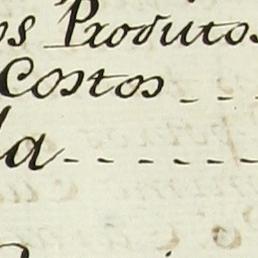 os Produtos
Costos
la